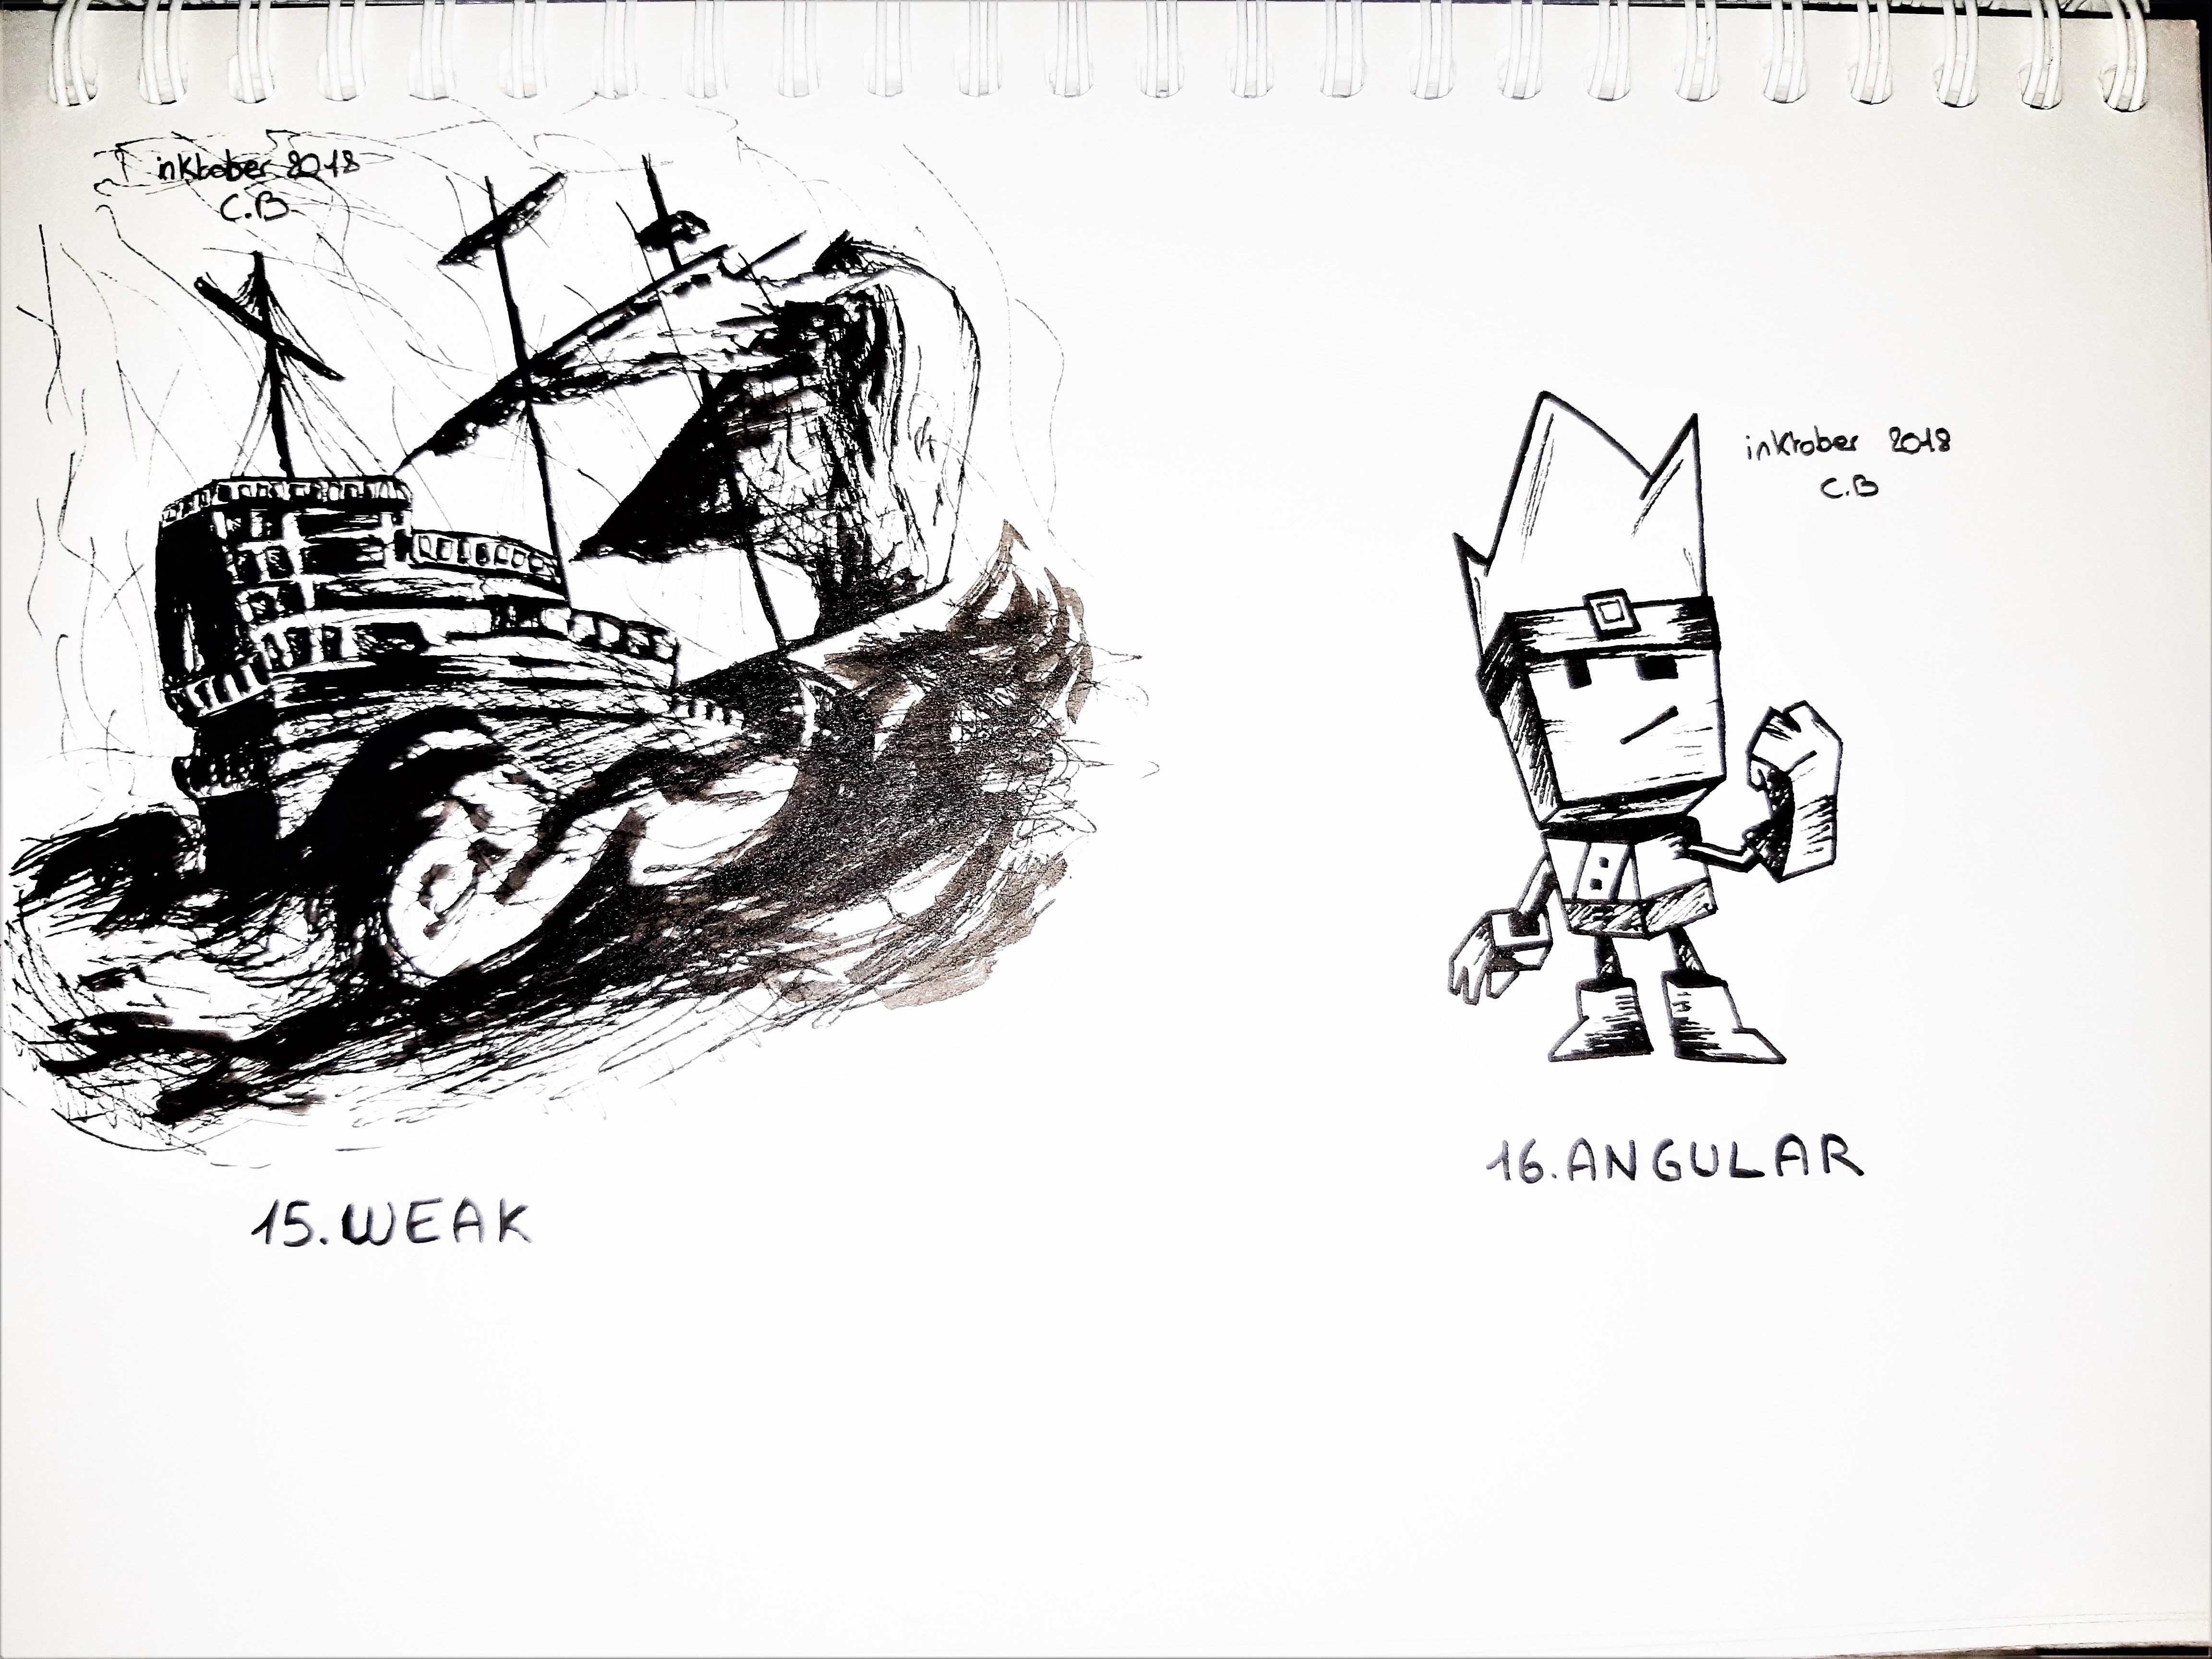 inktober 2018
C.B
15.WEAK
inktober 2018
C.B
16.ANGULAR